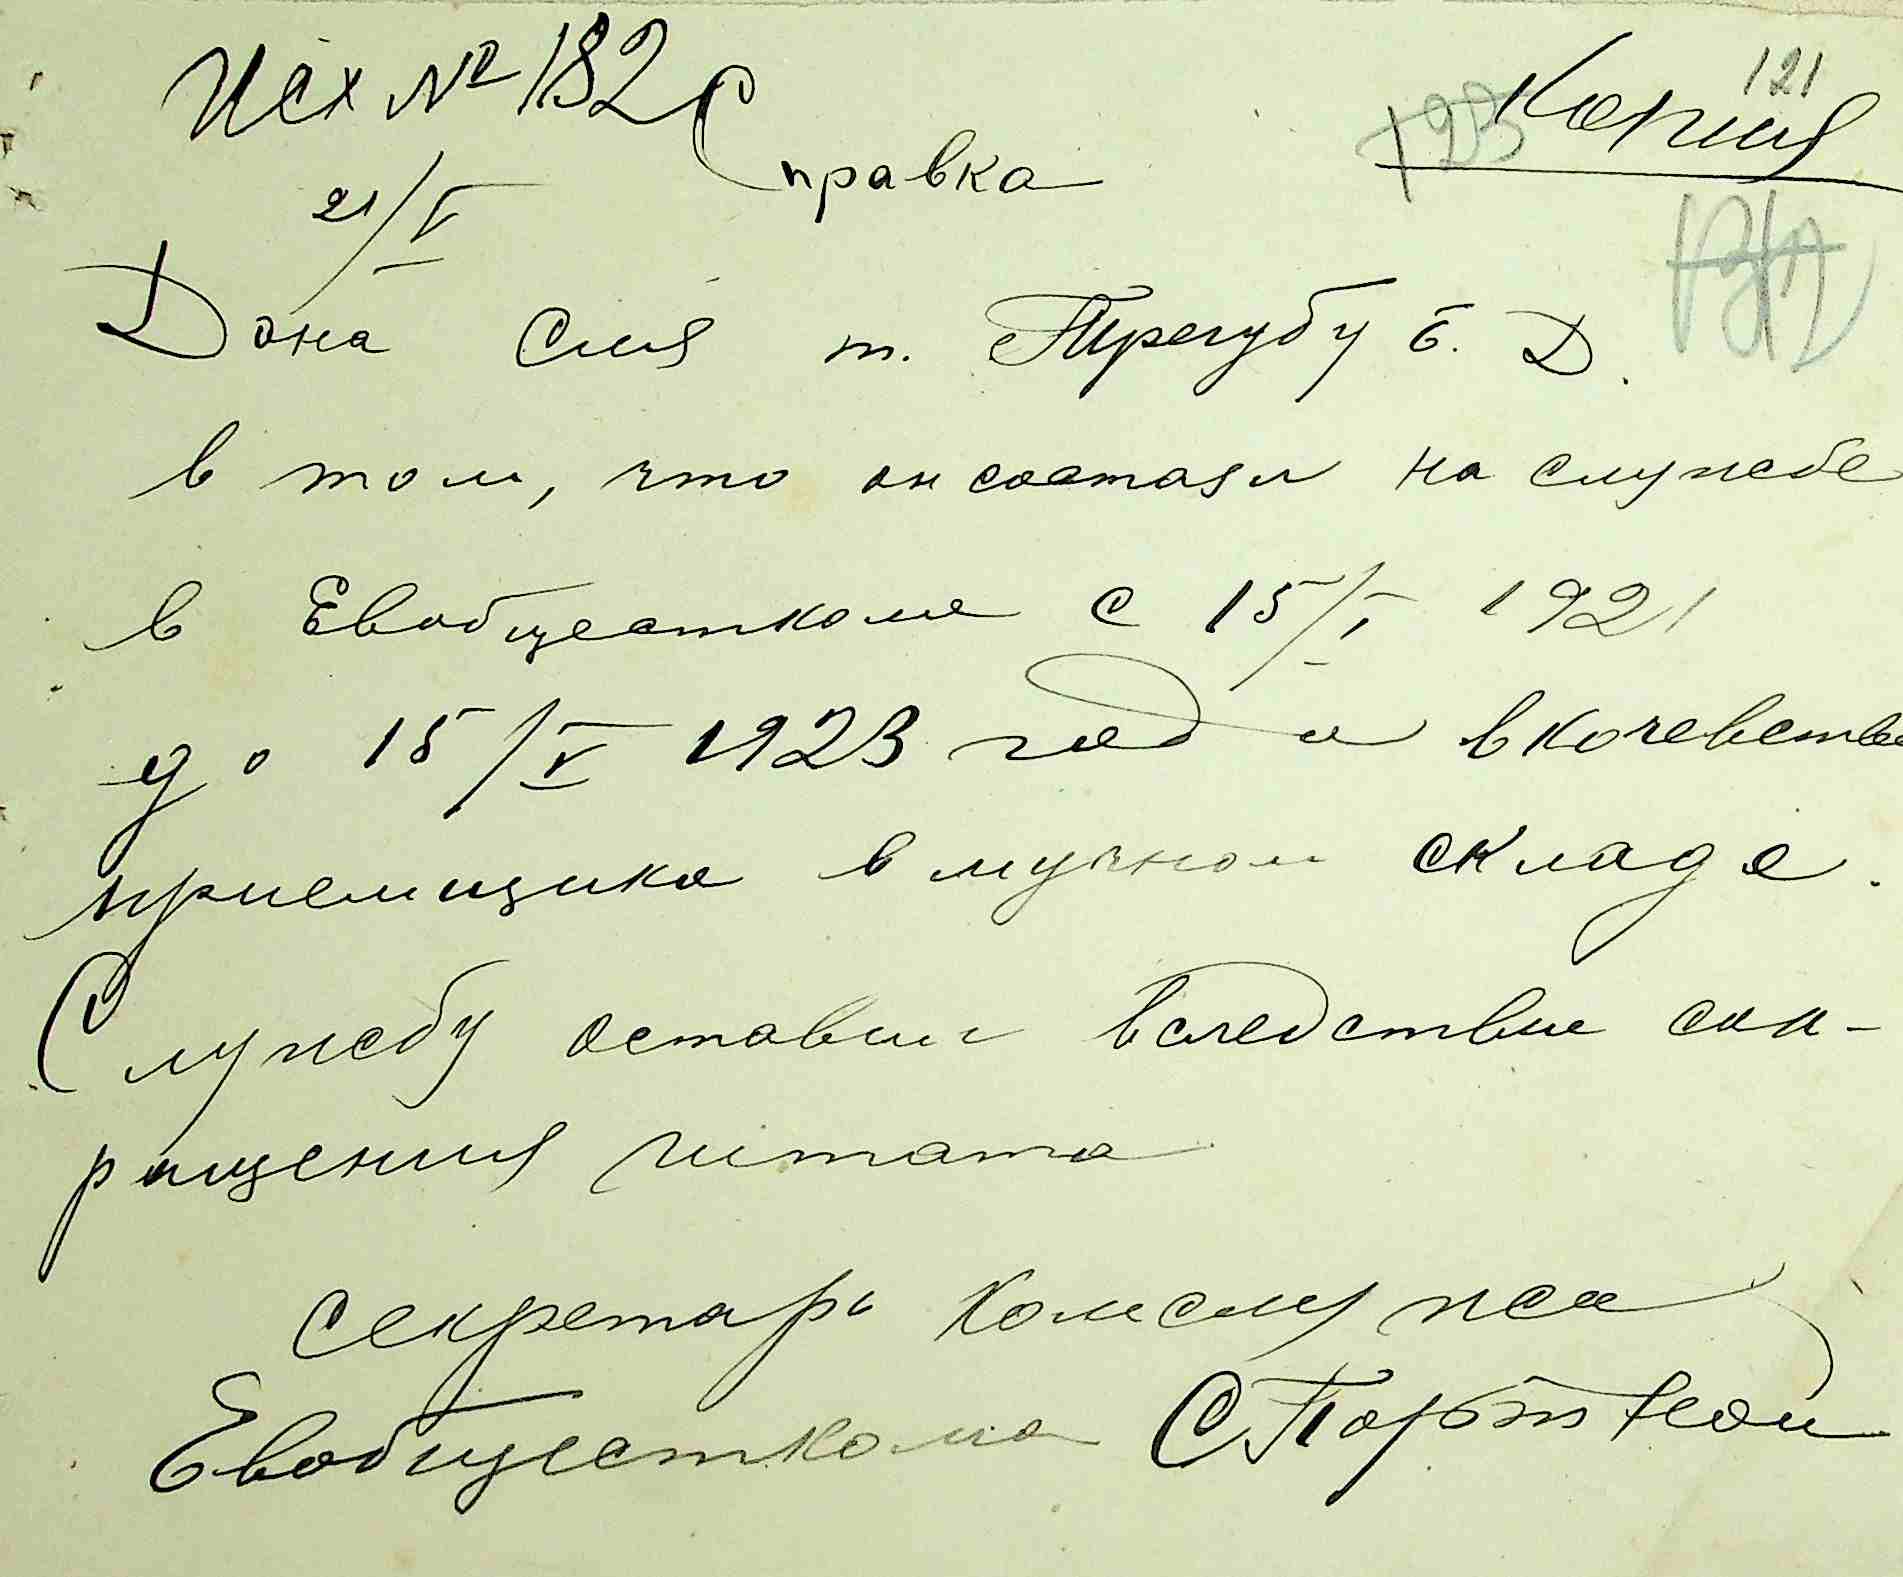 Исх № 182
121
Копия
Справка
21/V
Дана сия т. Трегубу Б. Д.
в том, что он состоял на службе
в Евобщесткоме с 15/I 1921
до 15/V 1923 года в кочевстве
приемщика в мучном складе.
Службу оставил вследствие сок-
ращения штата
секретарь Комслужса
Евобщесткома С Портной